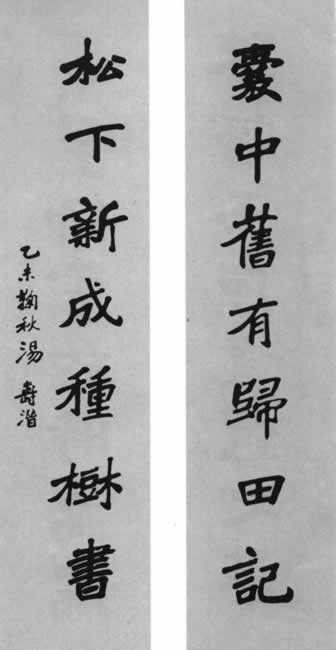 囊中舊有歸田記
松下新成種樹書
乙未鞠秋湯壽潛